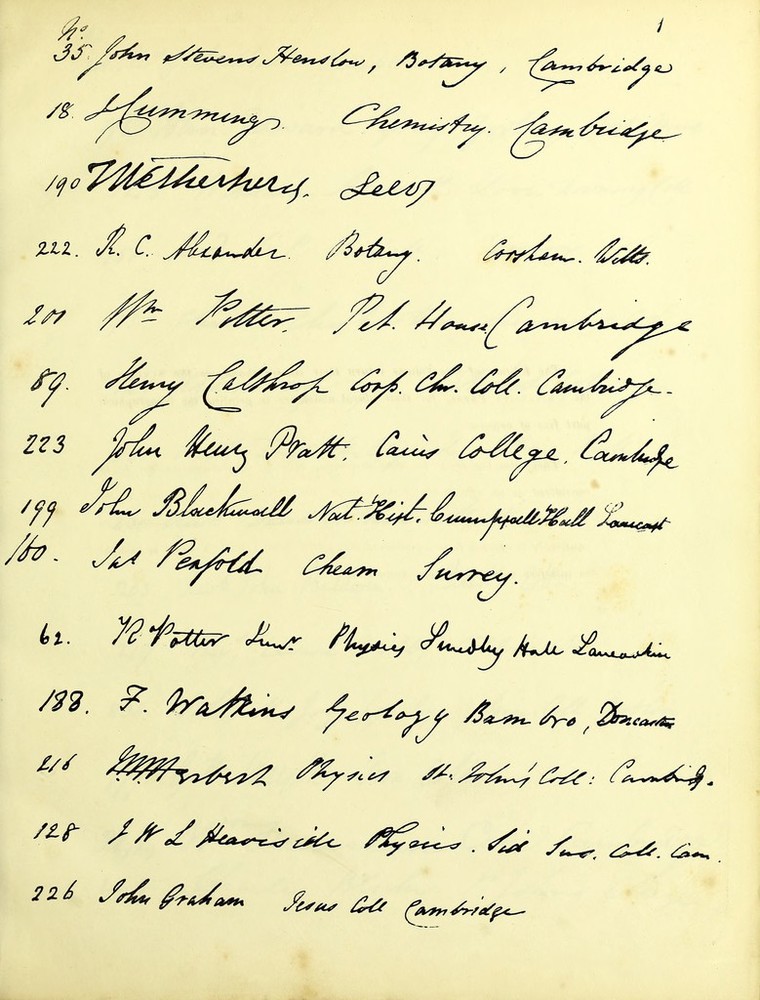 1
No.
35. John Stevens Henslow, Botany, Cambridge
18. J Cumming. Chemistry. Cambridge
190 Leeds
222. R. C. Alexander. Botany. Corsham. Wilts.
201 Wm Potter. Pet. House. Cambridge
89. Henry Calthrop Corp. Chr. Coll. Cambridge.
223 John Henry Pratt. Caius College. Cambridge
199 John Blackwall Nat. Hist. Crumpsall Hall Lancast
160. Jas Penfold Cheam Surrey.
62. R Potter Junr. Physics Smedley Hall Lancashire
188. F. Watkins Geology Bambro, Doncaster
216 Herbert Physics St. John's Coll: Cambridg.
128 J W L Heaviside Physics. Sid Sus. Coll. Cam.
226 John Graham Jesus Coll Cambridge